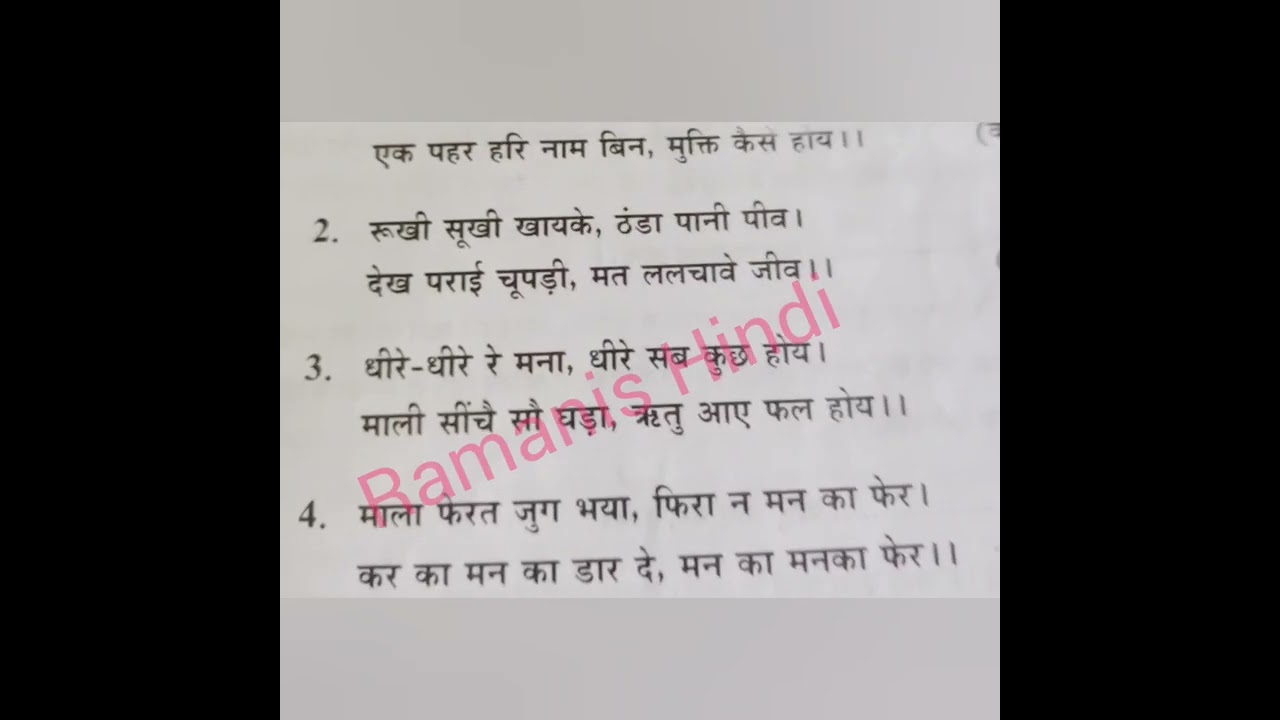 एक पहर हरि नाम बिन, मुक्ति कैसे होय।।
2. रूखी सूखी खायके, ठंडा पानी पीव।
देख पराई चूपड़ी, मत ललचावे जीव।।
3. धीरे-धीरे रे मना, धीरे सब कुछ होय।
माली सींचै सौ घड़ा, ऋतु आए फल होय।।
4. माला फेरत जुग भया, फिरा न मन का फेर।
कर का मन का डार दे, मन का मनका फेर।।
Ramanis Hindi